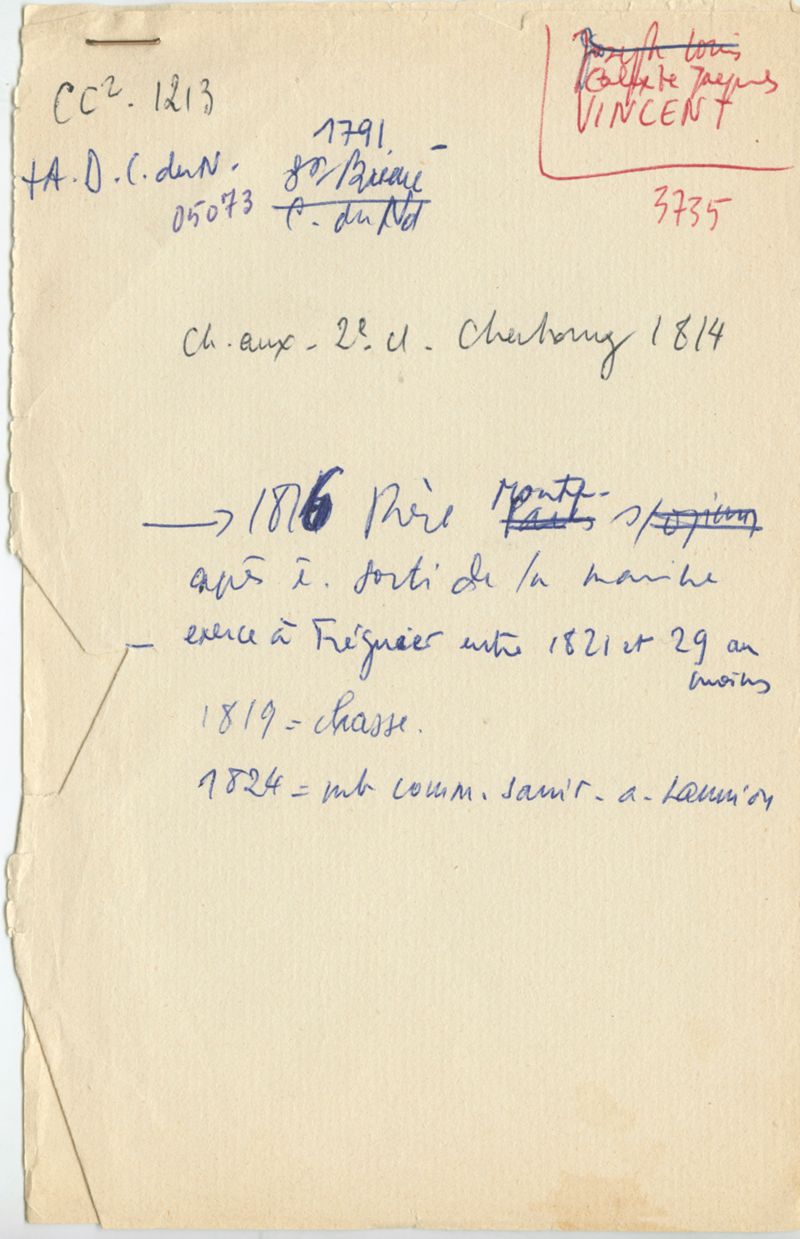 CC². 1213
Joseph Louis
Calixte Jacques
VINCENT
3735
1791 -
+ A. D. C. du N. St Brieuc
05073 C. du Nd
Ch. aux - 2e cl - Cherbourg 1814
→ 1816 Thèse Montp.
après ê. sorti de la marine
- exerce à Tréguier entre 1821 et 29 au
moins
1819 = chasse.
1824 = mb comm. sanit. a. Lannion